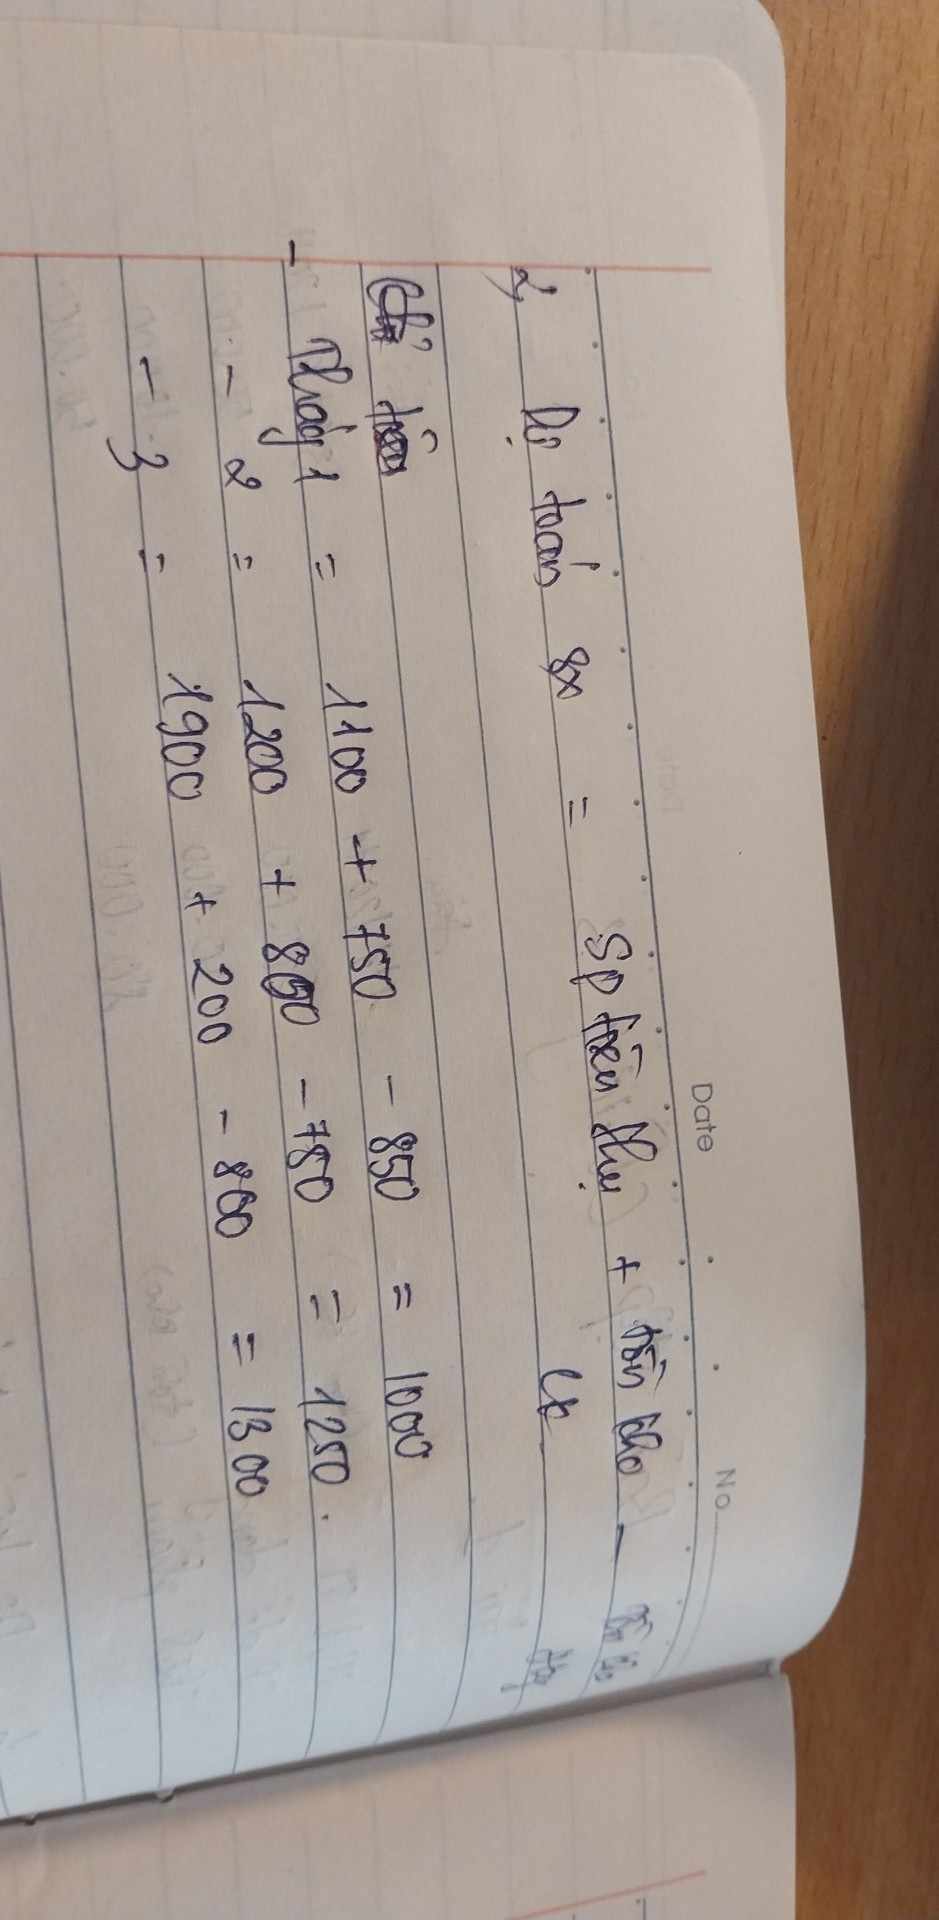 Date No
2, Dự toán sx = Sp tiêu thụ + tồn kho - tồn kho
ck đầu
- Tháng 1 = 1100 + 750 - 850 = 1000
- 2 = 1200 + 800 - 750 = 1250.
- 3 = 1900 + 200 - 800 = 1300